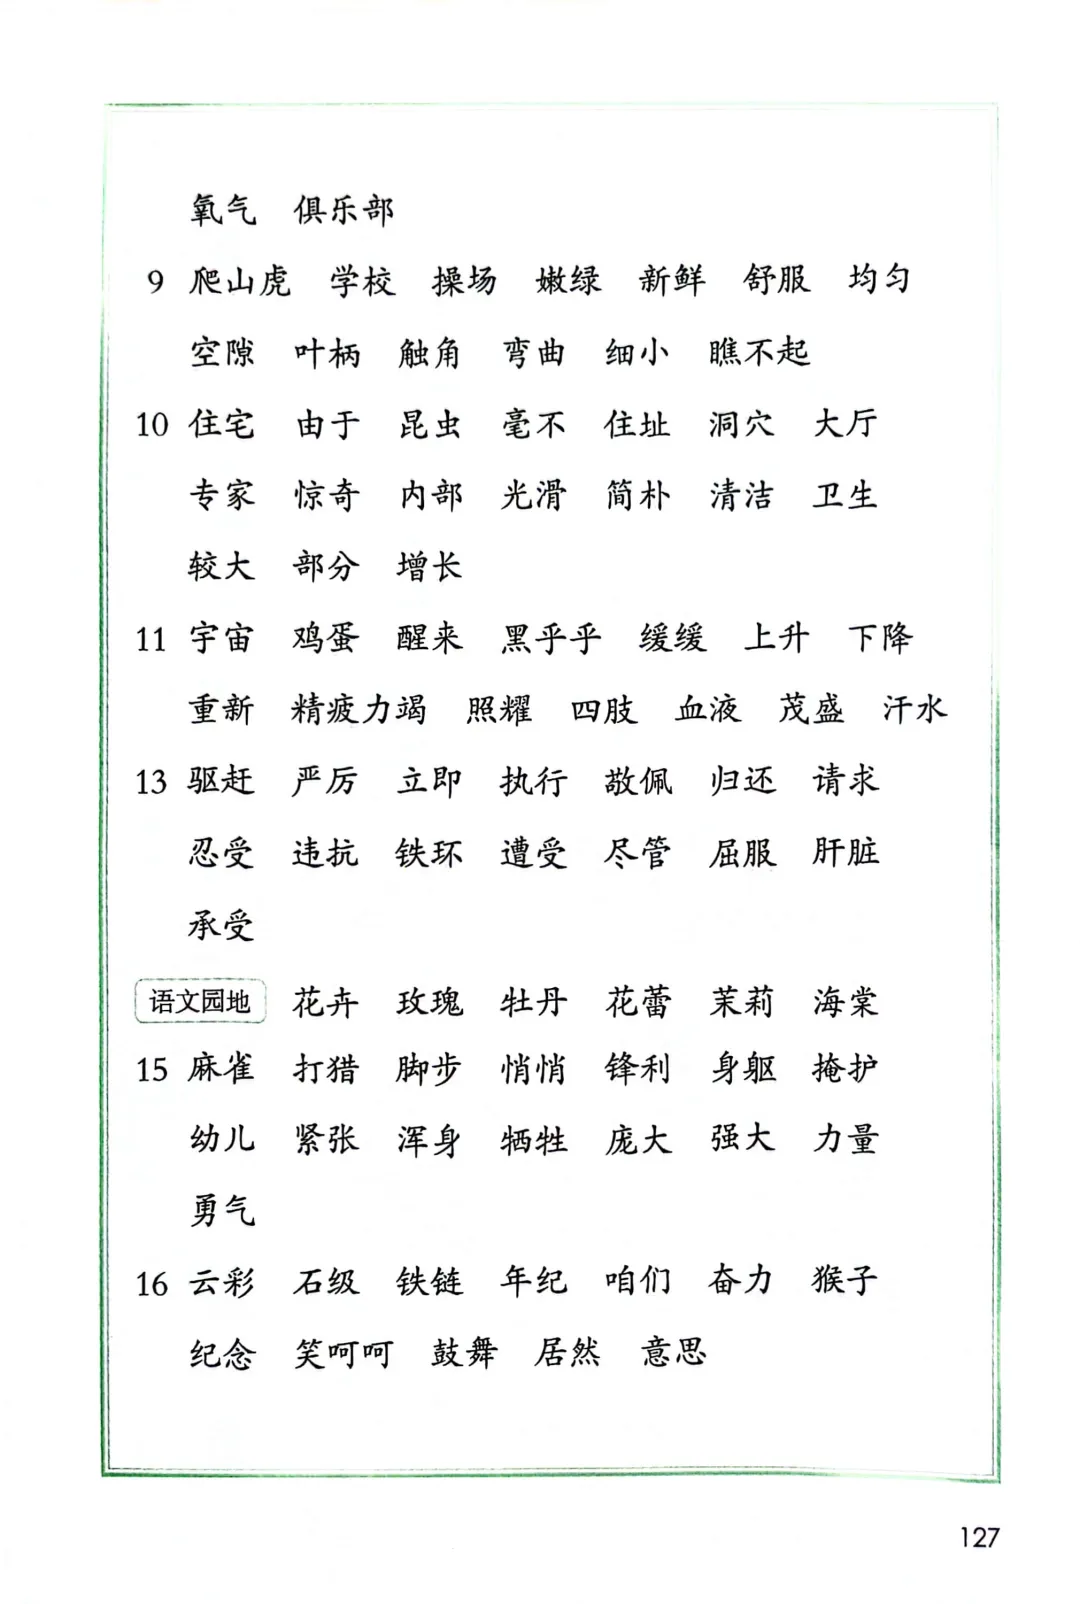 氧气 俱乐部
9 爬山虎 学校 操场 嫩绿 新鲜 舒服 均匀
空隙 叶柄 触角 弯曲 细小 瞧不起
10 住宅 由于 昆虫 毫不 住址 洞穴 大厅
专家 惊奇 内部 光滑 简朴 清洁 卫生
较大 部分 增长
11 宇宙 鸡蛋 醒来 黑乎乎 缓缓 上升 下降
重新 精疲力竭 照耀 四肢 血液 茂盛 汗水
13 驱赶 严厉 立即 执行 敬佩 归还 请求
忍受 违抗 铁环 遭受 尽管 屈服 肝脏
承受
语文园地 花卉 玫瑰 牡丹 花蕾 茉莉 海棠
15 麻雀 打猎 脚步 悄悄 锋利 身躯 掩护
幼儿 紧张 浑身 牺牲 庞大 强大 力量
勇气
16 云彩 石级 铁链 年纪 咱们 奋力 猴子
纪念 笑呵呵 鼓舞 居然 意思
127